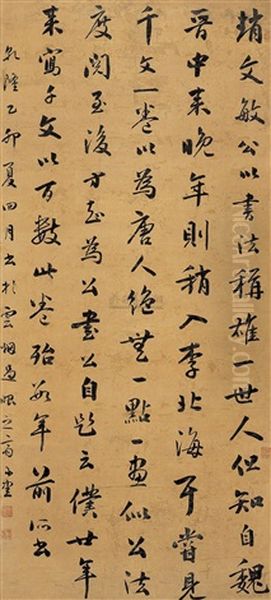 趙文敏公以書法稱雄世人但知自魏
晉中來晚年則稍入李北海耳嘗見
千文一卷以為唐人絕無一點一畫似公法
度閱至後方知為公書公自題云僕廿年
來寫千文以百數此卷殆數年前所書
乾隆乙卯夏四月書於雲烟過眼之齋